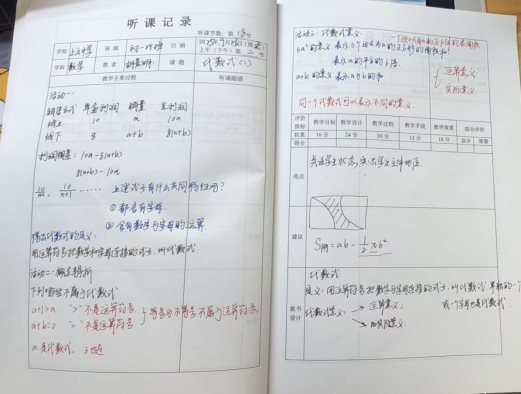 听课记录
听课节数：第 节
学校 上 中学 班级 日期 2025年9月 日
上午（下午）第 节
学科 数学 教者 课题 代数式(1)
教学主要过程 听课随感
活动一：
销售方式 单套利润 销量 总利润
线上 10 a 10a
线下 8 a+b 8(a+b)
利润 10a-8(a+b)
8(a+b)-10a
…… 上述式子有什么共同特征吗？
① 都含有字母
② 含有数字与字母的运算
得出代数式的定义：
用运算符号把数和字母连接的式子，叫代数式
活动二：概念辨析
下列哪些不属于代数式
a+1>a ">"不是运算符号
a+b=0 "="不是运算符号 等号与不等号不属于运算符号
a是代数式，3也是
活动三：代数式意义
6a²的意义 表示 a的正方形的面积和
一个 的正方体的表面积
表示a的平方的6倍
a+b的意义 表示a与b的和
运算意义
实际意义
同一个代数式可以表示不同的意义
评价指标 教学目标 教学设计 教学过程 教学手段 教学效果 综合评价
权重 16分 24分 30分 12分 18分 总分 等第
得分
亮点
关注学生状态，突出学生主体地位
建议
S阴=ab-½πb²
板书设计
代数式
定义：用运算符号把数与字母连接的式子，叫代数式 单独的一个
或一个字母也是代数式
代数式意义： 运算意义
实际意义